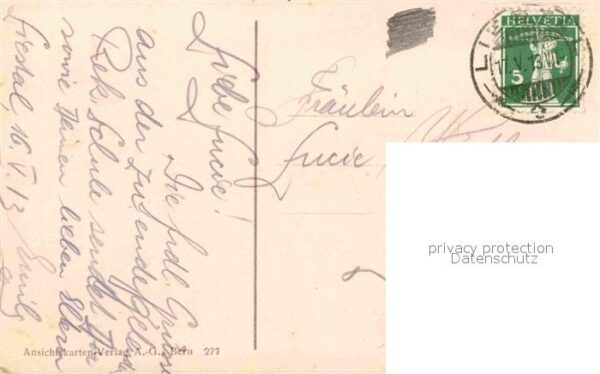 Liebe Lucie!
Die frdl. Grüsse
aus der zu Ende
Rek. Schule sendet
sowie Ihnen lieben Eltern
Liestal, 16. V. 13 Emil
Fräulein
Lucie
HELVETIA
5
LI
V. 13
2
Ansichtskarten-Verlag A.-G., Bern 277
privacy protection
Datenschutz